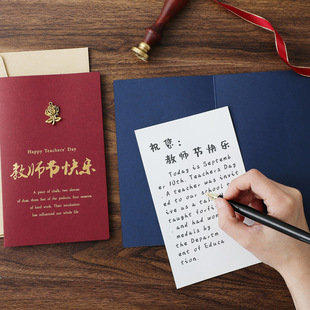 Happy Teachers' Day
教师节快乐
A piece of chalk, two sleeves
of dust, three feet of the podium, four seasons
of hard work. Their incubation
has influenced our whole life.
祝您:
教师节快乐
Today is Septemb
er 10th. Teachers Day
A teacher was invit
ed to our school
ive us a talk
taught for
and had won
medals by
the Departm
ent of Educa
tion